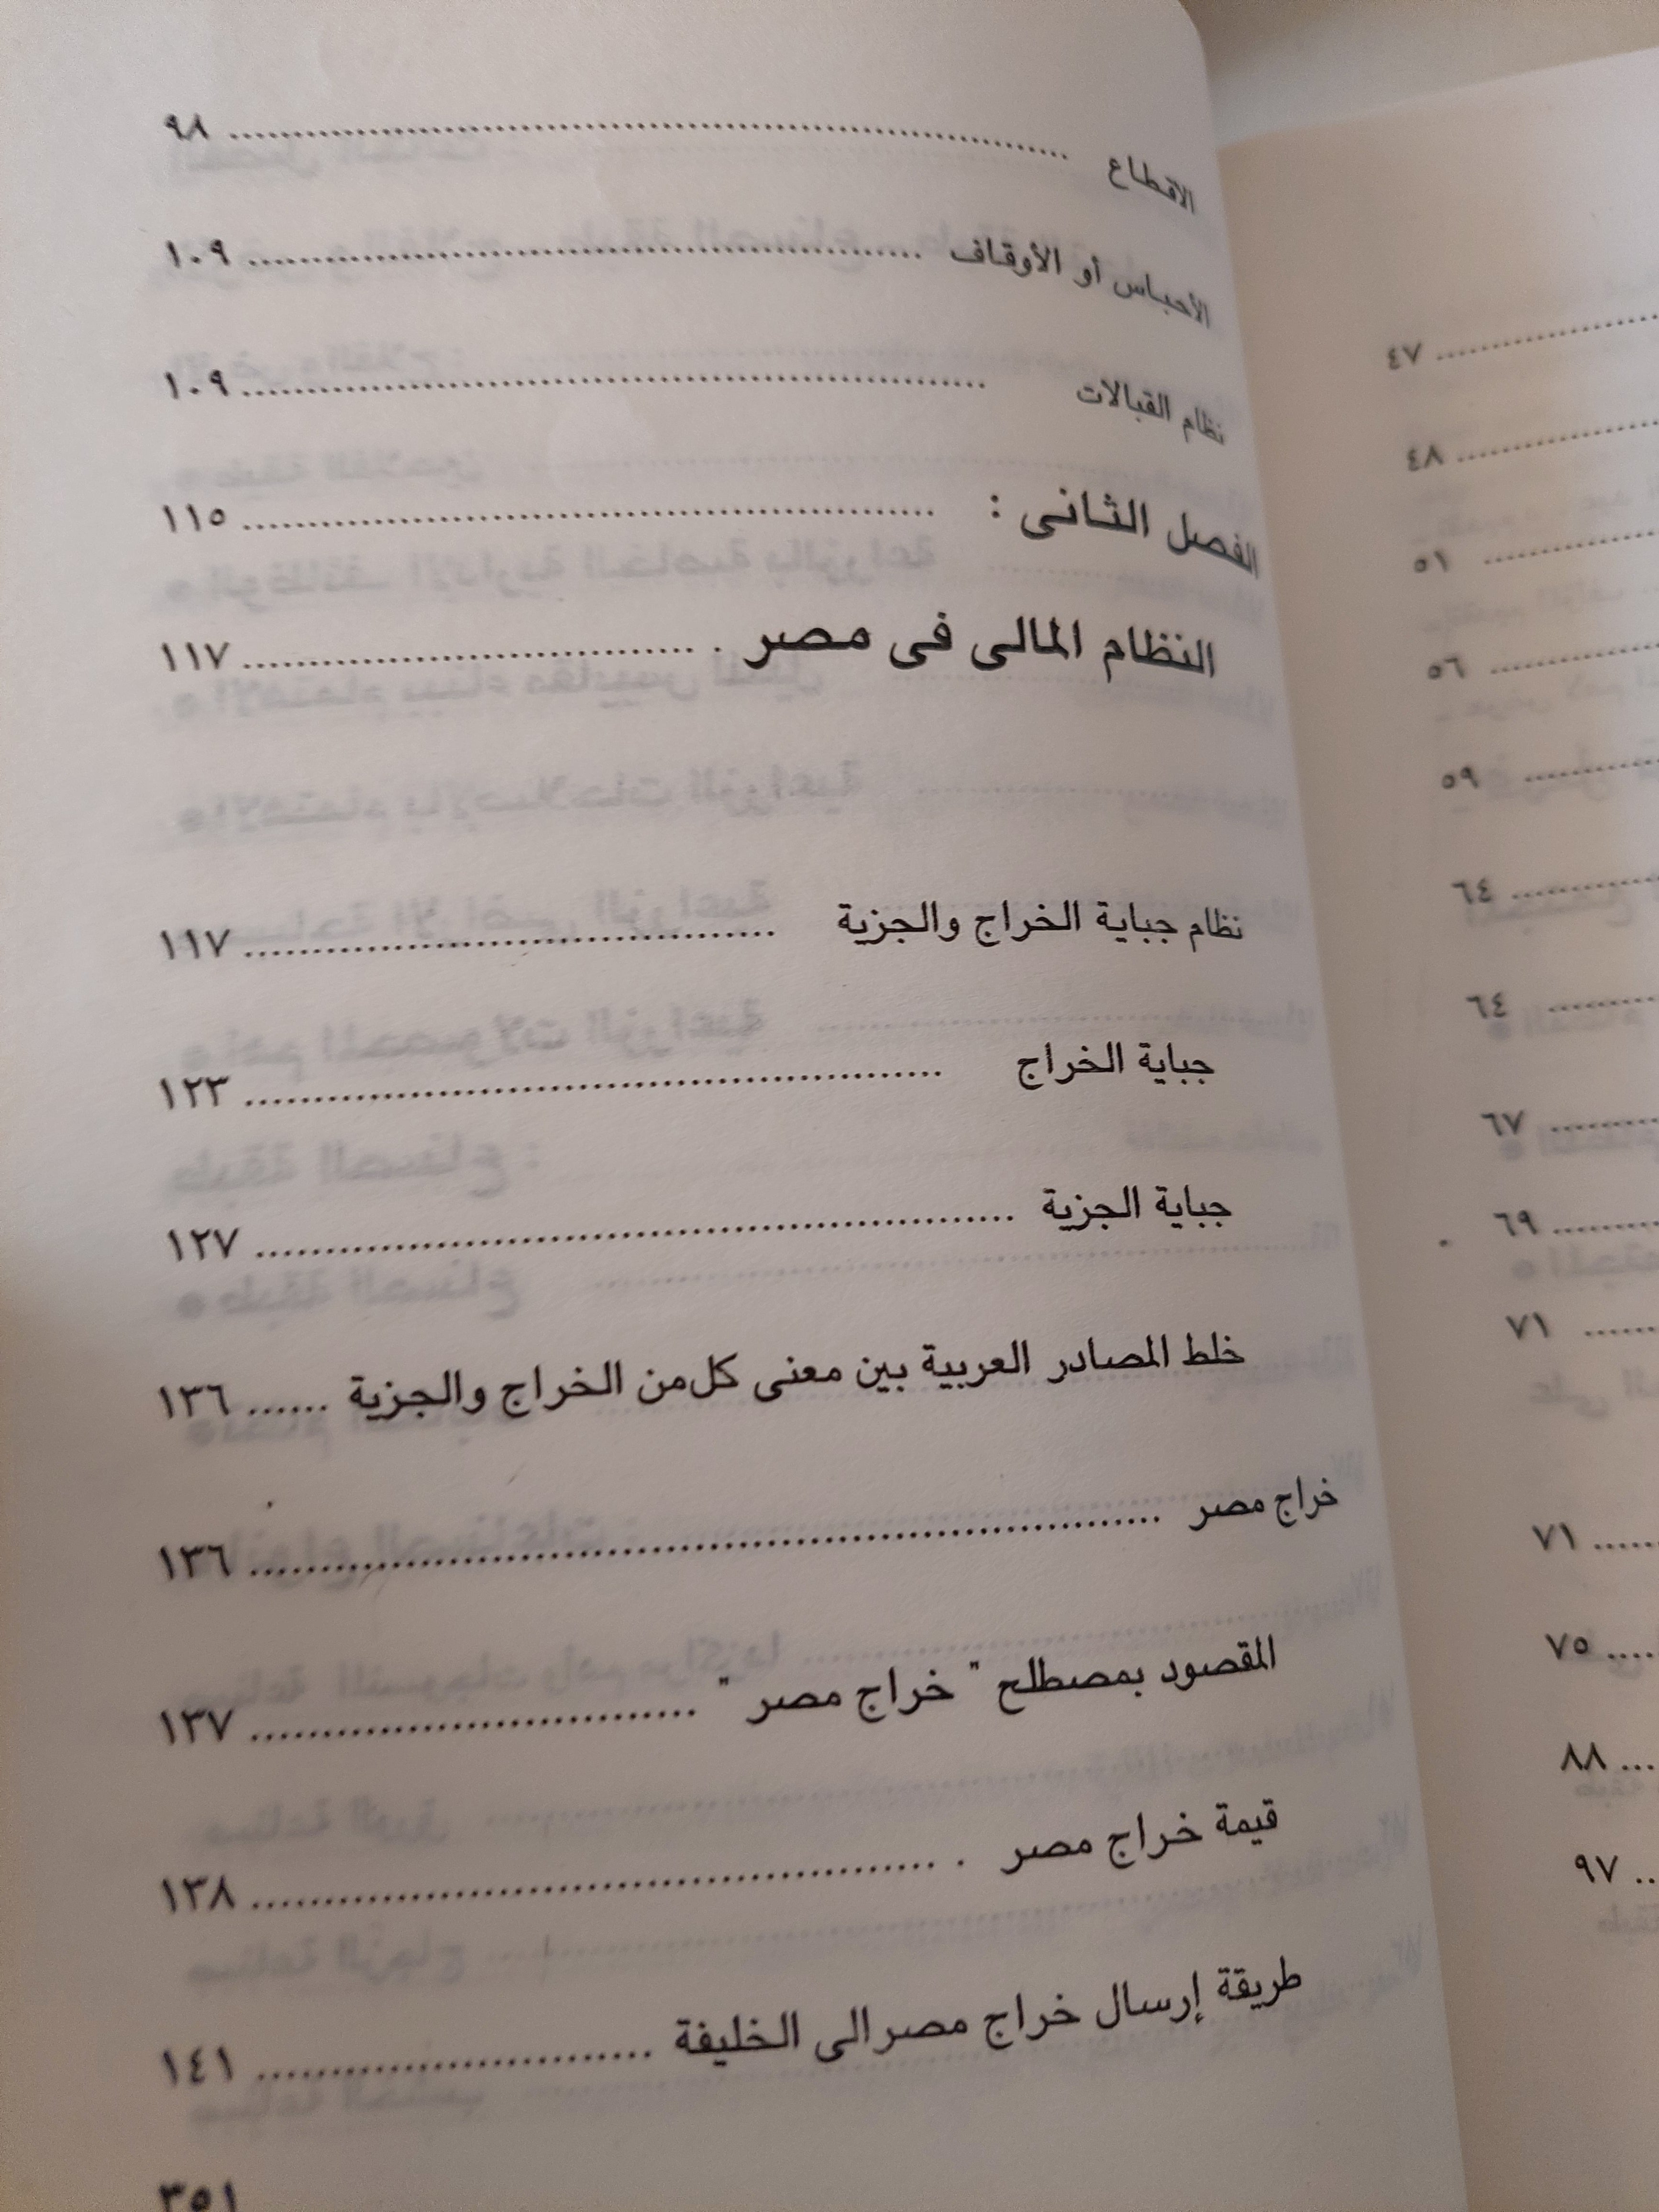 الاقطاع ........ ٩٨
الأحباس أو الأوقاف ........ ١٠٩
نظام القبالات ........ ١٠٩
الفصل الثانى : ........ ١١٥
النظام المالى فى مصر ........ ١١٧
نظام جباية الخراج والجزية ........ ١١٧
جباية الخراج ........ ١٢٣
جباية الجزية ........ ١٢٧
خلط المصادر العربية بين معنى كل من الخراج والجزية ...... ١٣٦
خراج مصر ........ ١٣٦
المقصود بمصطلح " خراج مصر " ........ ١٣٧
قيمة خراج مصر ........ ١٣٨
طريقة إرسال خراج مصر الى الخليفة ........ ١٤١
٣٥١
........ ٤٧
........ ٤٨
........ ٥١
........ ٥٦
........ ٥٩
........ ٦٤
........ ٦٤
........ ٦٧
........ ٦٩
........ ٧١
........ ٧١
........ ٧٥
........ ٨٨
........ ٩٧